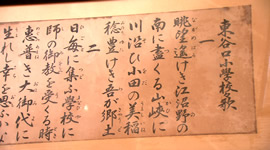 東谷口小學校歌
一
眺望遙けき江沼野の
南に盡くる山峡に
川沿ひ小田の美稲
稔豊けき吾が郷土
二
日毎に集ふ學校に
師の御教を受くる時
恵普き大御代に
生れし幸を思ふ